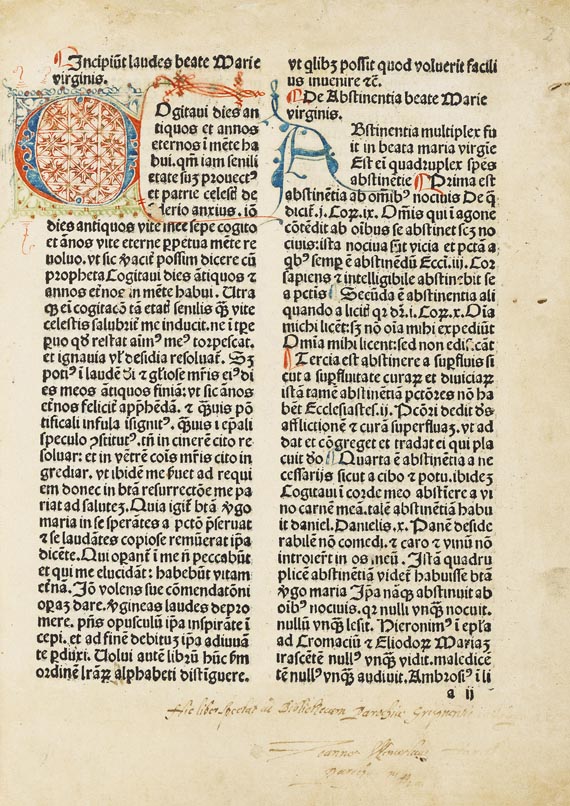 Incipiũt laudes beate Marie
virginis.
COgitaui dies an
tiquos et annos
eternos ĩ mẽte ha
bui. qm̃ iam senili
etate suꝫ prouectꝰ
et patrie celesẽ de
siderio anxius. iõ
dies antiquos vite mee sepe cogito
et ãnos vite eterne ꝑpetua mẽte re
uoluo. vt sic ꝟaciť possim dicere cũ
propheta Cogitaui dies ãtiquos ⁊
annos etꝰnos in mẽte habui. Utra
qꝫ ei cogitacõ tã etati senilis qꝫ vite
celestis salubriť me inducit. ne ĩ tꝑe
ꝑuo qď restat aĩmꝰ meꝰ torpescat.
et ignauia vľ desidia resoluať. Sꝫ
potiꝰ ĩ laudẽ dĩ ⁊ gľiose mr̃is eiꝰ di
es meos ãtiquos finiã: vt sic ãnos
etꝰnos feliciť apphẽdã. ⁊ quis põ
tificali infula insignitꝰ. quis i ep̃ali
speculo ꝯstitutꝰ. tñ in cinerẽ cito re
soluar: et in vẽtrẽ cõis mr̃is cito in
grediar. vt ibidẽ me ẜuet ad requi
em donec in btã resurrectõe me pa
riat ad saluteꝫ. Quia igiť btã ꝟgo
maria in se sperãtes a pctõ p̃seruat
⁊ se laudãtes copiose remũerat ip̃a
dicẽte. Qui operanť ĩ me ñ peccabũt
et qui me elucidãt: habebũt vitam
etꝰnã. Iõ volens sue cõmendatõni
operaꝫ dare. ꝟgineas laudes depro
mere. pñs opusculũ ip̃a inspirãte ĩ
cepi. et ad finẽ debituꝫ ip̃a adiuuã
te ꝑduxi. Uolui autẽ librũ hũc ẜm
ordinẽ lr̃aꝝ alphabeti distĩguere.
vt qlibꝫ possit quod voluerit facili
us inuenire ⁊c̃.
De Abstinentia beate Marie
virginis.
ABstinentia multiplex fu
it in beata maria virgie
Est ei quadruplex spẽs
abstinẽtie Prima est
abstinẽtia ab om̃ibꝰ nociuis De q̃
diciť.j. Coꝝ.ix. Om̃is qui ĩ agone
cõtẽdit ab oĩbus se abstinet scꝫ no
ciuis: ista nociua sũt vicia et pctã a
qbꝰ semꝑ ẽ abstinẽdũ Ecci.iij. Cor
sapiens ⁊ intelligibile abstinebit se
a pctis Secũda ẽ abstinẽtia ali
quando a licitꝭ qꝛ dr̃.i. Coꝝ.x. Oĩa
michi licẽt: sꝫ nõ oĩa mihi expediũt
Om̃ia mihi licent: sed non edificãt
Tercia est abstinere a suꝑfluis si
cut a suꝑfluitate curaꝝ et diuiciaꝝ
istã tamẽ abstinẽtiã pctõres nõ ha
bẽt Ecclesiastes.ij. Pctõri dedit dꝰs
afflictionẽ ⁊ curã suꝑfluaꝫ. vt ad
dat et cõgreget et tradat ei qui pla
cuit deo Quarta ẽ abstinẽtia a ne
cessarijs sicut a cibo ⁊ potu. ibideꝫ
Cogitaui ĩ corde meo abstẽre a vi
no carnẽ meã. talẽ abstinẽtiã habu
it daniel. Danielis.x. Panẽ deside
rabilẽ nõ comedi. ⁊ caro ⁊ vinũ nõ
introiert̃ in os meũ. Istã quadru
plicẽ abstinẽtiã videť habuisse btã
ꝟgo maria Ip̃a nãqꝫ abstinuit ab
oĩbꝰ nociuis. qꝛ nulli vnqꝫ nocuit.
nullũ vnqꝫ lesit. Hieronimꝰ ĩ ep̃la
ad Cromaciũ ⁊ Eliodoꝝ Mariaꝫ
irascẽtẽ nullꝰ vnqꝫ vidit. maledicẽ
tẽ nullꝰ vnqꝫ audiuit. Ambrosiꝰ ĩ li
a ij
Hic liber spectat ad Bibliothecam Parochiæ
Joannes